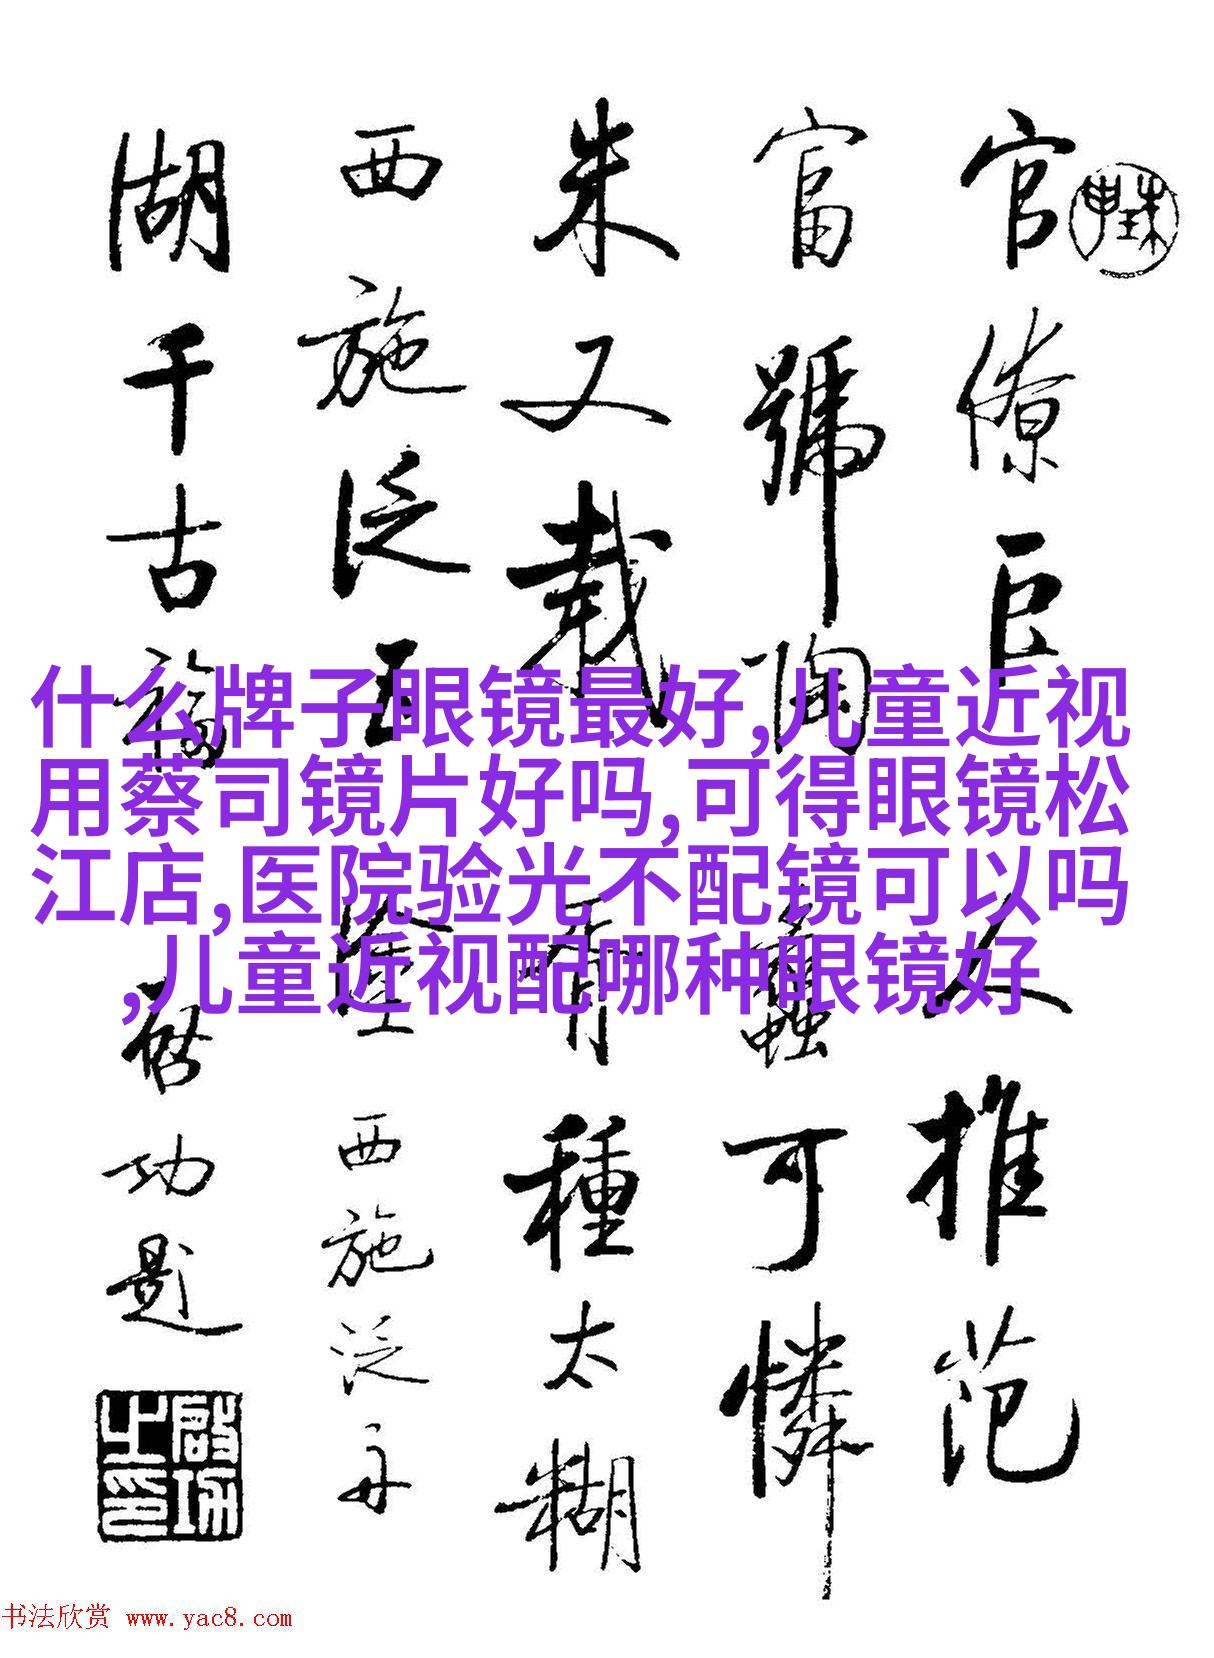 官僚巨人推范
富號陶蠡可憐
朱又栽秀種太糊
西施泛五塗西施泛舟
湖千古福启功题
什么牌子眼镜最好,儿童近视
用蔡司镜片好吗,可得眼镜松
江店,医院验光不配镜可以吗
,儿童近视配哪种眼镜好
书法欣赏 www.yac8.com